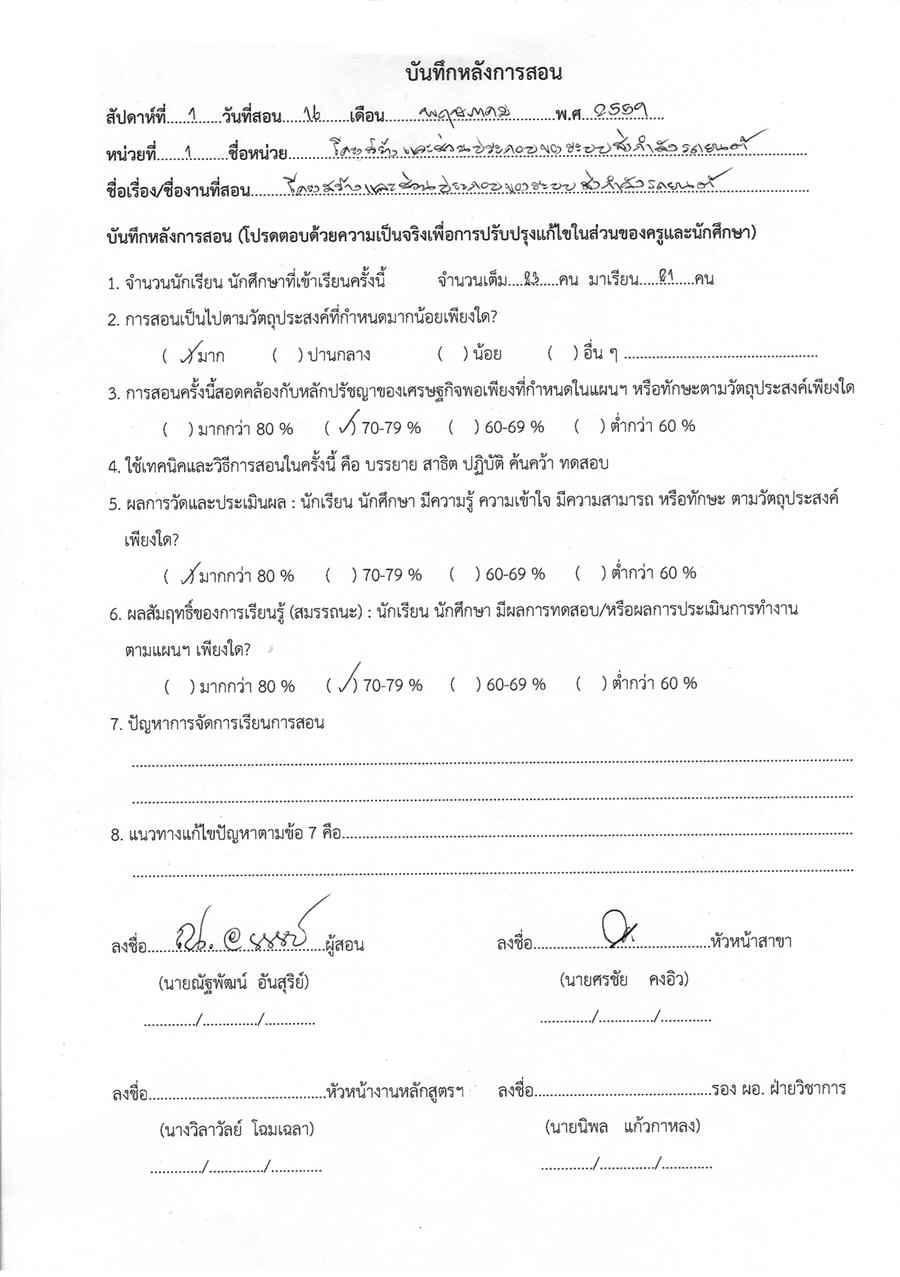 บันทึกหลังการสอน
สัปดาห์ที่......1......วันที่สอน......16......เดือน......พฤษภาคม......พ.ศ. 2559
หน่วยที่......1......ชื่อหน่วย......โครงสร้างและส่วนประกอบของระบบส่งกำลังรถยนต์......
ชื่อเรื่อง/ชื่องานที่สอน......โครงสร้างและส่วนประกอบของระบบส่งกำลังรถยนต์......
บันทึกหลังการสอน (โปรดตอบด้วยความเป็นจริงเพื่อการปรับปรุงแก้ไขในส่วนของครูและนักศึกษา)
1. จำนวนนักเรียน นักศึกษาที่เข้าเรียนครั้งนี้ จำนวนเต็ม....23.....คน มาเรียน.....21.....คน
2. การสอนเป็นไปตามวัตถุประสงค์ที่กำหนดมากน้อยเพียงใด?
( ✓ ) มาก ( ) ปานกลาง ( ) น้อย ( ) อื่น ๆ ......................
3. การสอนครั้งนี้สอดคล้องกับหลักปรัชญาของเศรษฐกิจพอเพียงที่กำหนดในแผนฯ หรือทักษะตามวัตถุประสงค์เพียงใด
( ) มากกว่า 80 % ( ✓ ) 70-79 % ( ) 60-69 % ( ) ต่ำกว่า 60 %
4. ใช้เทคนิคและวิธีการสอนในครั้งนี้ คือ บรรยาย สาธิต ปฏิบัติ ค้นคว้า ทดสอบ
5. ผลการวัดและประเมินผล : นักเรียน นักศึกษา มีความรู้ ความเข้าใจ มีความสามารถ หรือทักษะ ตามวัตถุประสงค์
เพียงใด?
( ✓ ) มากกว่า 80 % ( ) 70-79 % ( ) 60-69 % ( ) ต่ำกว่า 60 %
6. ผลสัมฤทธิ์ของการเรียนรู้ (สมรรถนะ) : นักเรียน นักศึกษา มีผลการทดสอบ/หรือผลการประเมินการทำงาน
ตามแผนฯ เพียงใด?
( ) มากกว่า 80 % ( ✓ ) 70-79 % ( ) 60-69 % ( ) ต่ำกว่า 60 %
7. ปัญหาการจัดการเรียนการสอน
8. แนวทางแก้ไขปัญหาตามข้อ 7 คือ......................
ลงชื่อ......................ผู้สอน ลงชื่อ......................หัวหน้าสาขา
(นายณัฐพัฒน์ อันสุริย์) (นายศรชัย คงอิว)
............/............/............ ............/............/............
ลงชื่อ......................หัวหน้างานหลักสูตรฯ ลงชื่อ......................รอง ผอ. ฝ่ายวิชาการ
(นางวิลาวัลย์ โฉมเฉลา) (นายนิพล แก้วกาหลง)
............/............/............ ............/............/............